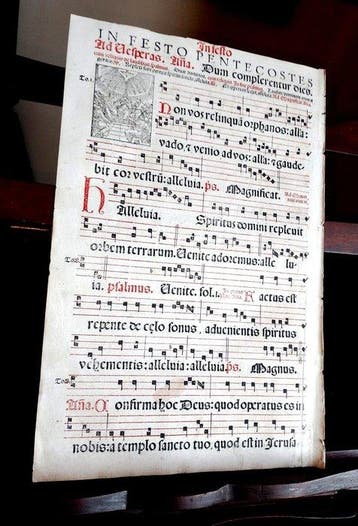 IN FESTO PENTECOSTES
In festo
Ad Vesperas. Aña. Dum complerentur &c.
To.1.
Non vos relinquā orphanos: alla:
vado, ⁊ venio ad vos: alla: ⁊ gaude-
bit cor vestrū: alleluia. ps. Magnificat.
H
Alleluia. Spiritus domini replevit
orbem terrarum. Uenite adoremus: alle lu-
ia. psalmus. Uenite. fol. R Factus est
repente de celo sonus, advenientis spiritus
vehementis: alleluia: alleluia. ps. Magnus.
Aña. Confirma hoc Deus: quod operatus es in
nobis: a templo sancto tuo, quod est in Jerusa-